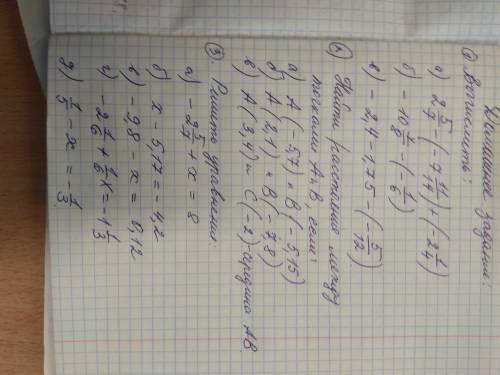 Домашнее задание:
① Вычислить:
а) 2 5/7 - (-7 11/14) + (-2 1/4)
б) - 10 1/8 - (- 1/6)
в) - 2,4 - 1,75 - (- 5/12)
② Найти расстояние между
точками А и В, если:
а) А (-5,7) и В (-5,15)
б) А (2,1) и В (-7,8)
в) А (3,4) и С (-2)-середина АВ.
③ Решить уравнения:
а) - 2 5/7 + х = 8
б) х - 5,17 = -4,2
в) - 9,8 - х = 0,12
г) - 2 1/6 + 1/6 х = -1 1/3
д) 1/5 - х = 1/3